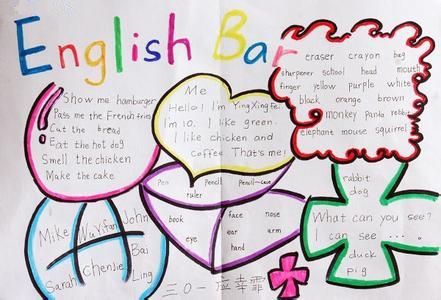 English Bar
Show me hamburger
Pass me the French fries
Cut the bread
Eat the hot dog
Smell the chicken
Make the cake
Me
Hello! I'm YingXingfei
I'm 10. I like green.
I like chicken and
coffee That's me!
eraser crayon bag
sharpener school head mouth
finger yellow purple white
black orange brown
monkey panda rabbit
elephant mouse squirrel
Pen Pencil Pencil-case
ruler
book face nose
eye ear arm
hand
Mike WuYifan John
Sarah ChenJie Bai
Ling
rabbit
dog
What can you see?
I can see ... .
duck
pig
三〇一